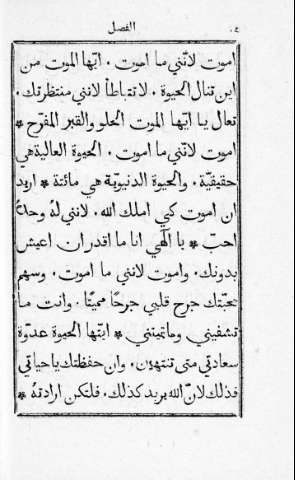 ٤٠ الفصل
اموت لانّني ما اموت٠ ايّها الموت من
اين تنال الحيوة٠ لا تتباطأ لانني منتظرتك٠
تعال يا ايّها الموت الحلو والقبر المفرّح *
اموت لانّني ما اموت٠ الحيوة العالية هي
حقيقيّة٠ والحيوة الدنيويّة هي مائتة * اريد
ان اموت كي املك الله٠ لانني لهُ وحدهُ
احبّ * يا الٰهي انا ما اقدر ان اعيش
بدونك٠ واموت لانني ما اموت٠ وسهم
محبّتك جرح قلبي جرحًا مميتًا٠ وانت ما
تشفيني وما تميتني * ايّتها الحيوة عدوّة
سعادتي متى تنتهين٠ وان حفظتك يا حياتي
فذلك لانّ الله يريد كذلك٠ فلتكن ارادتهُ *